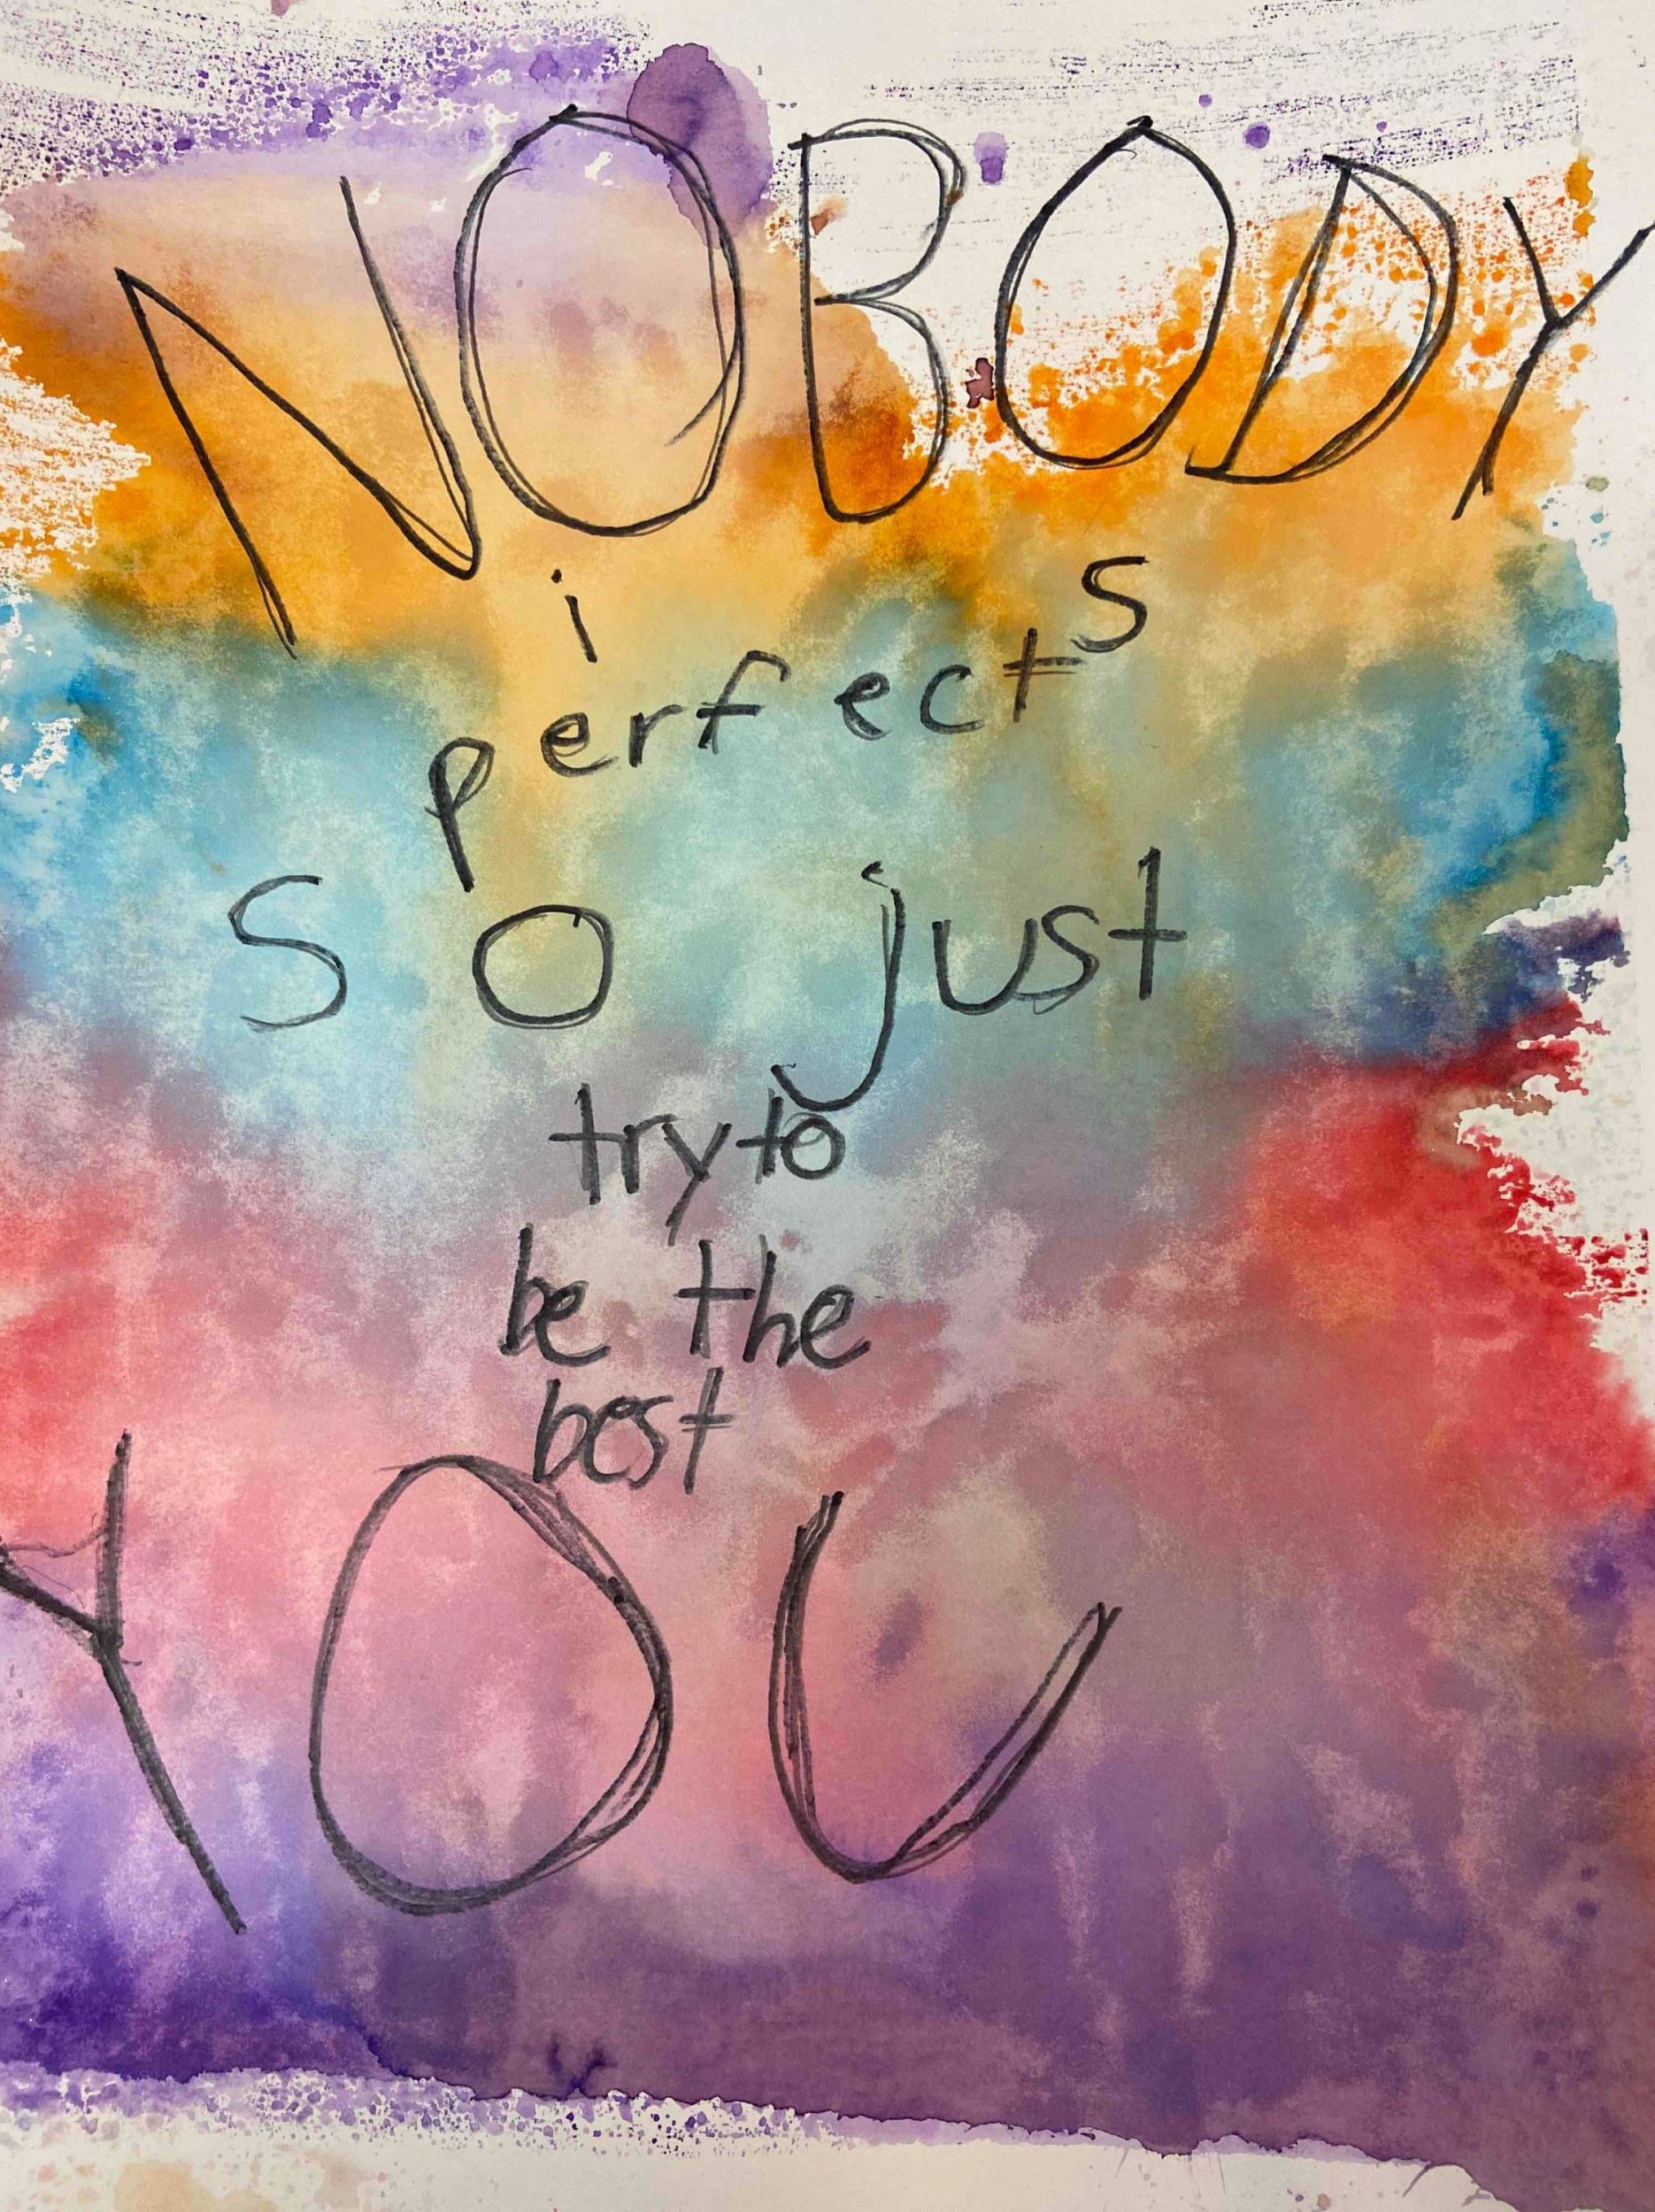 NOBODY
i s
perfect
so just
try to
be the
best
YOU